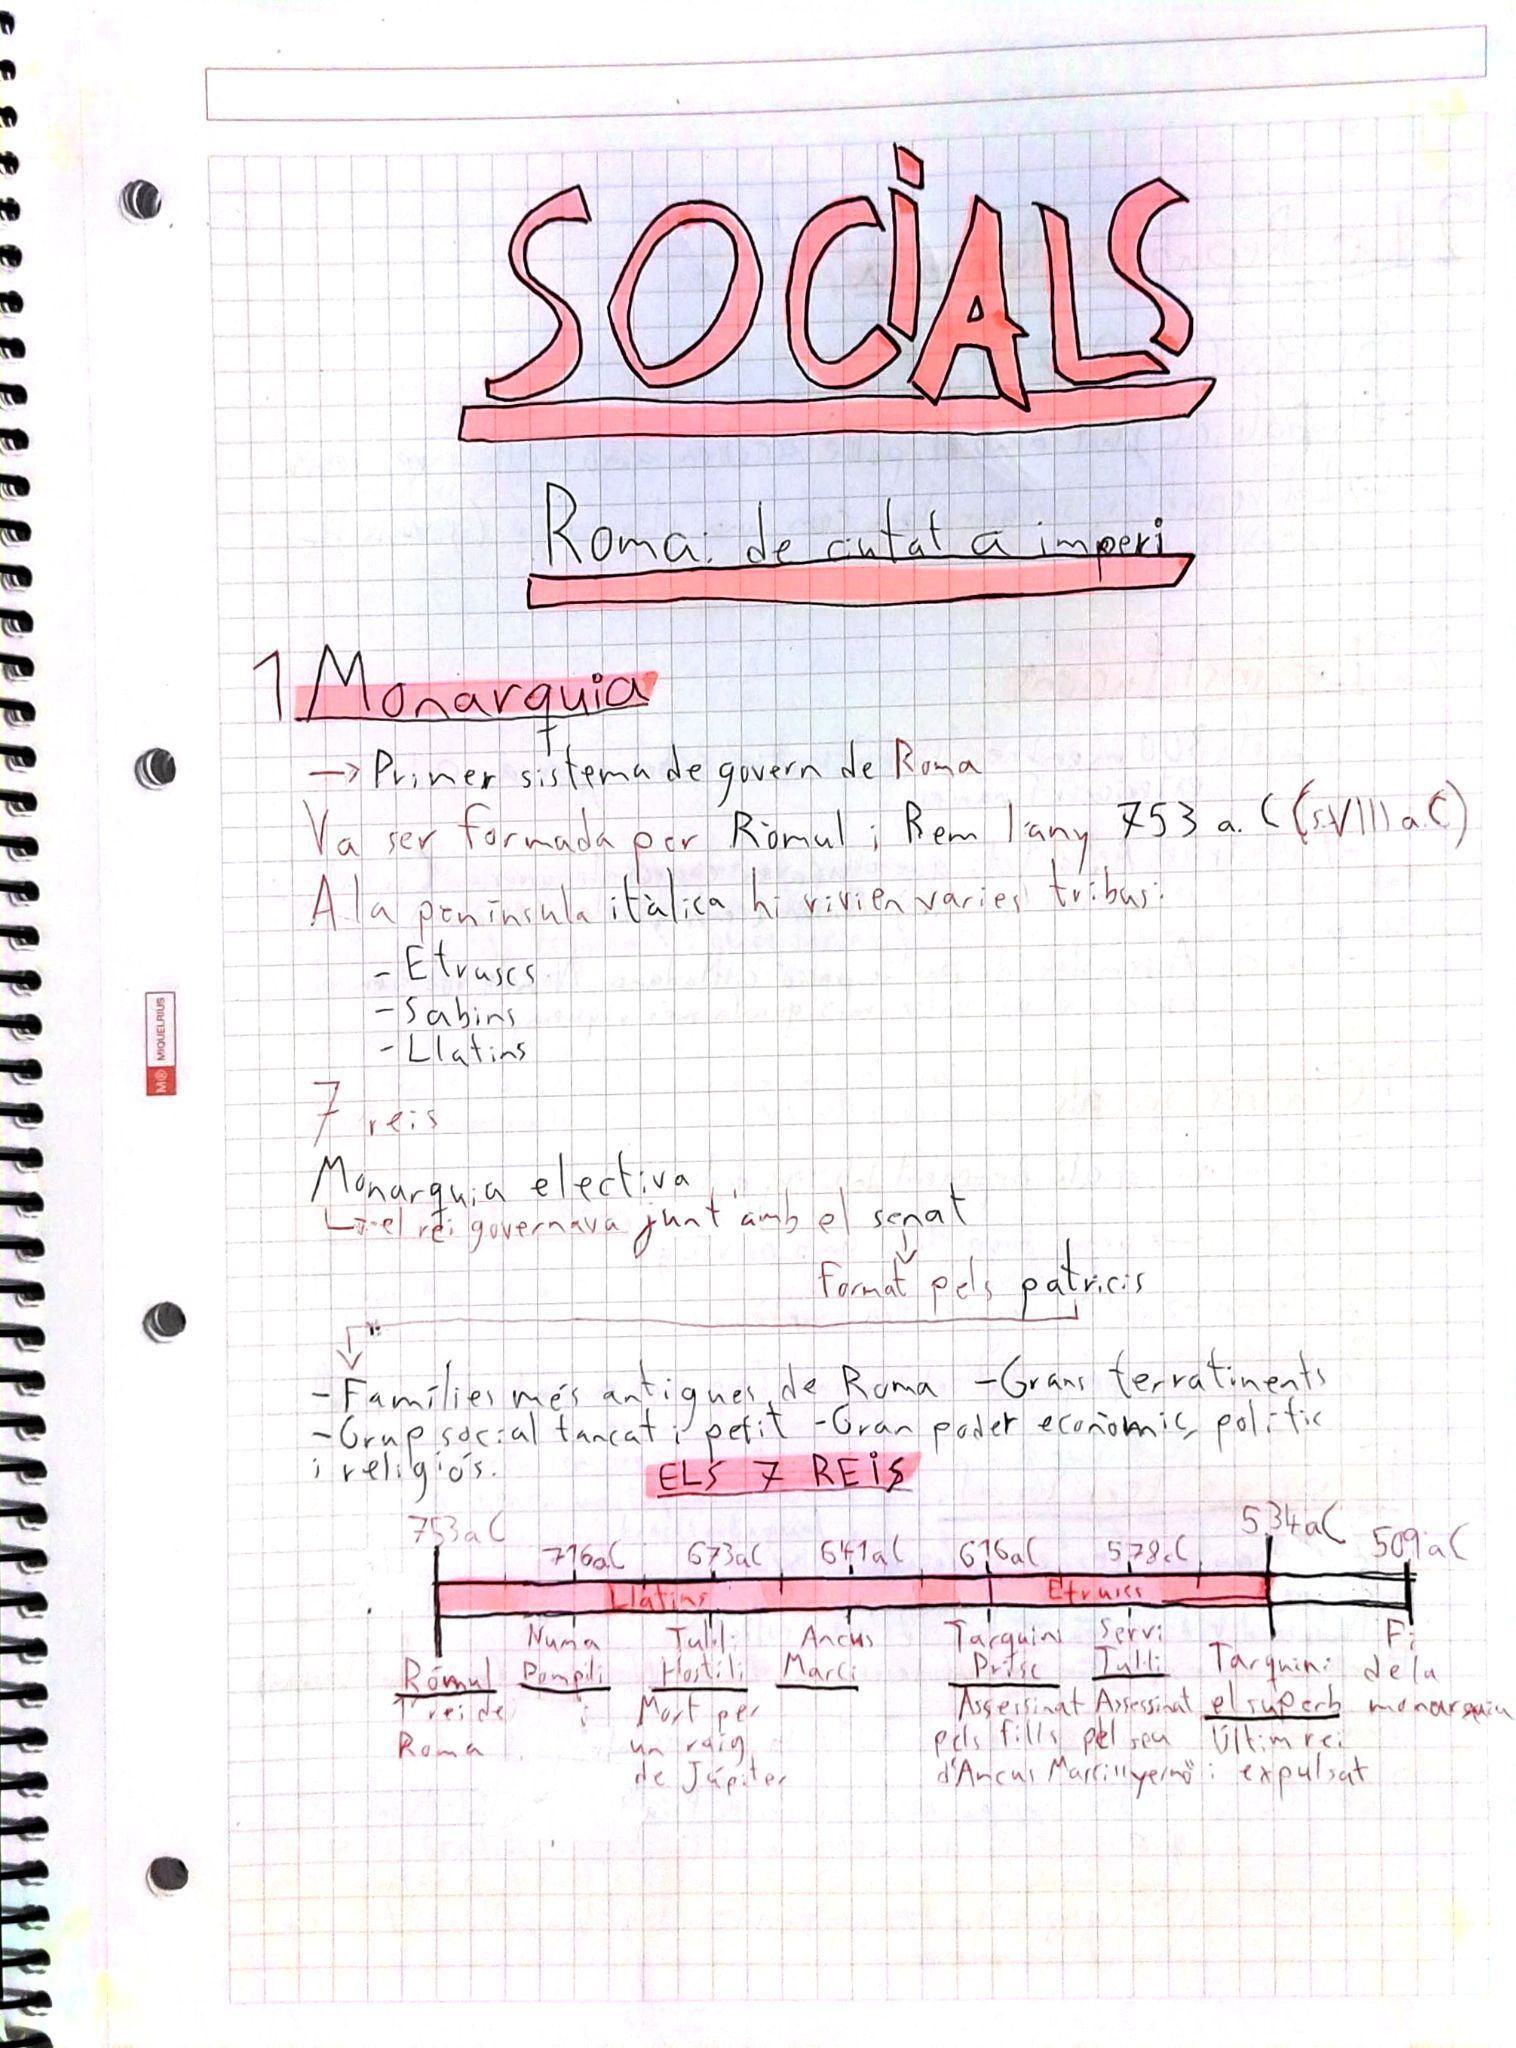 SOCiALS
Roma: de ciutat a imperi
1 Monarquia
→ Primer sistema de govern de Roma
Va ser formada per Ròmul i Rem l'any 753 a.C (s.VIII a.C)
A la península itàlica hi vivien varies tribus:
- Etruscs
- Sabins
- Llatins
7 reis
Monarquia electiva
↳ el rei governava junt amb el senat
Format pels patricis
- Famílies més antigues de Roma - Grans terratinents
- Grup social tancat i petit - Gran poder econòmic, polític
i religiós.
ELS 7 REiS
753aC 716aC 673aC 641aC 616aC 578aC 534aC 509aC
Llatins Etruscs
Ròmul
1r rei de
Roma
Numa
Pompili
Tul·li
Hostili
Mort per
un raig
de Júpiter
Ancus
Marci
Tarquini
Prisc
Assessinat
pels fills
d'Ancus Marci
Servi
Tul·li
Assessinat
pel seu
"yerno"
Tarquini
el superb
Últim rei
i expulsat
Fi
de la
monarquia
MIQUELRIUS